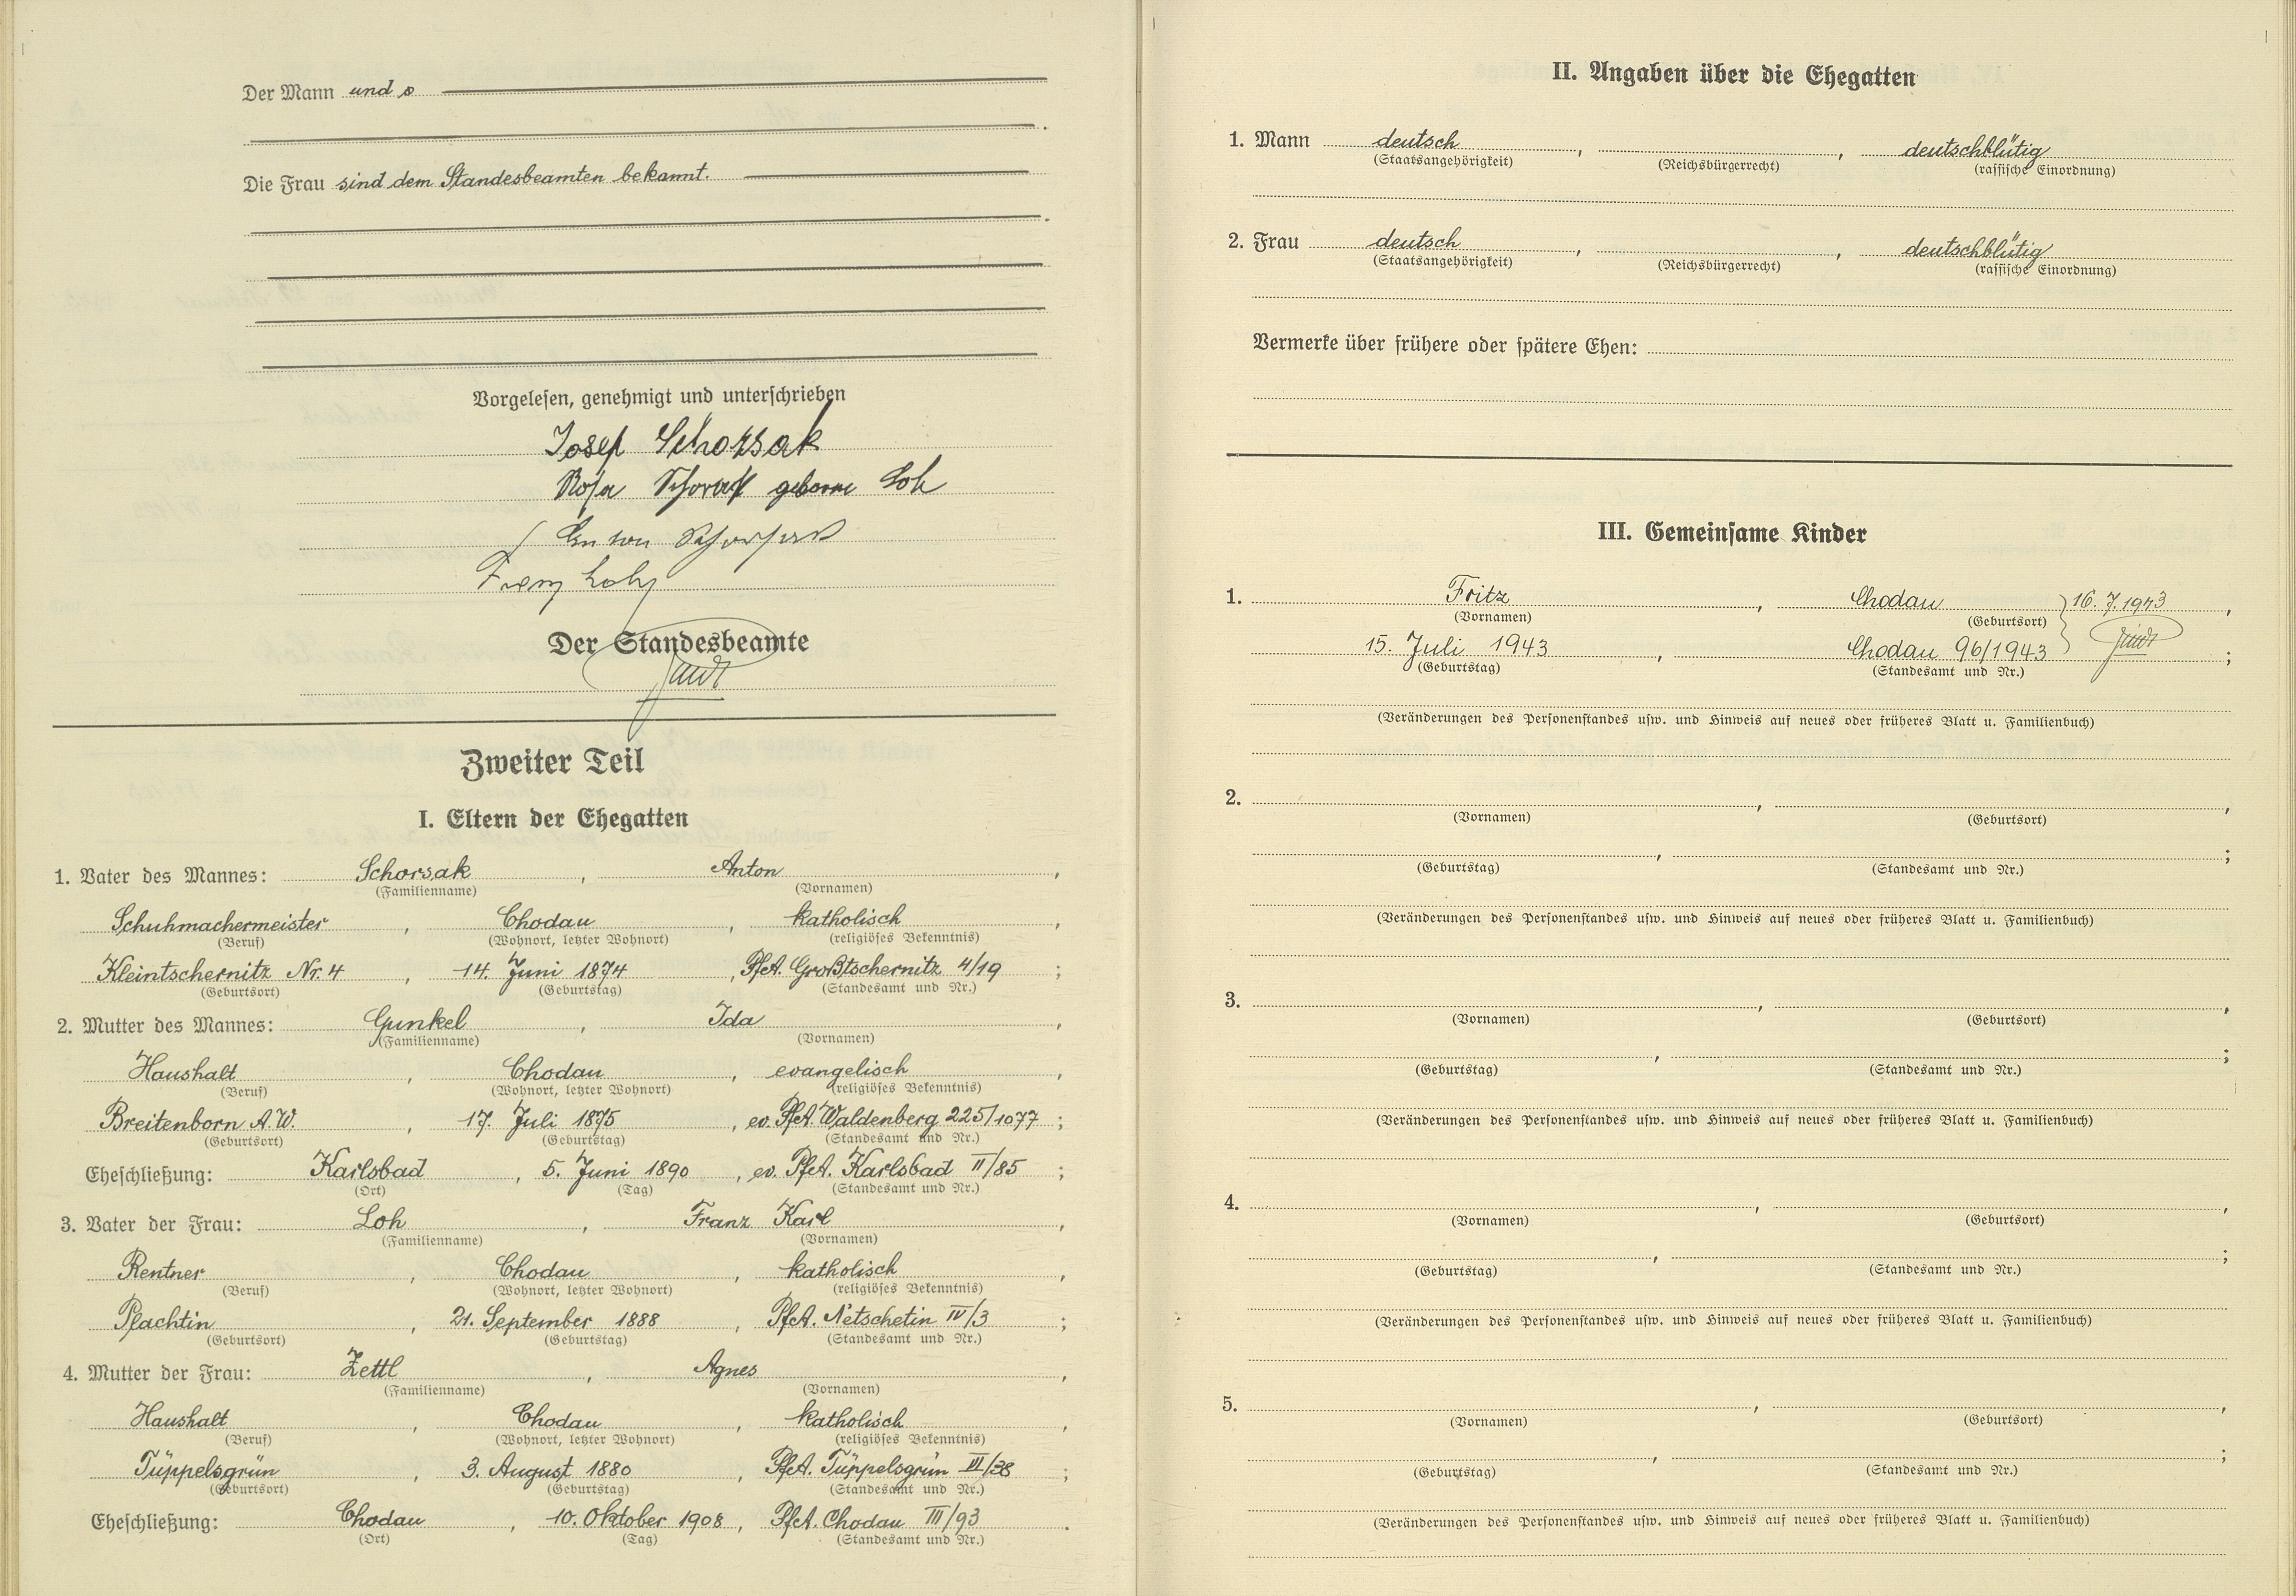 Der Mann und s
Die Frau sind dem Standesbeamten bekannt.
Vorgelesen, genehmigt und unterschrieben
Josef Schorsak
Rosa Schorsak geborne Loh
Anton Schorsak
Franz Loh
Der Standesbeamte
Zweiter Teil
I. Eltern der Ehegatten
1. Vater des Mannes: Schorsak, Anton,
(Familienname) (Vornamen)
Schuhmachermeister, Chodau, katholisch,
(Beruf) (Wohnort, letzter Wohnort) (religiöses Bekenntnis)
Kleintschernitz Nr. 4, 14. Juni 1874, PfA. Großtschernitz 4/19;
(Geburtsort) (Geburtstag) (Standesamt und Nr.)
2. Mutter des Mannes: Gunkel, Ida,
(Familienname) (Vornamen)
Haushalt, Chodau, evangelisch,
(Beruf) (Wohnort, letzter Wohnort) (religiöses Bekenntnis)
Breitenborn A. W., 17. Juli 1875, ev. PfA. Waldenberg 225/1077;
(Geburtsort) (Geburtstag) (Standesamt und Nr.)
Eheschließung: Karlsbad, 5. Juni 1890, ev. PfA. Karlsbad II/85;
(Ort) (Tag) (Standesamt und Nr.)
3. Vater der Frau: Loh, Franz Karl,
(Familienname) (Vornamen)
Rentner, Chodau, katholisch,
(Beruf) (Wohnort, letzter Wohnort) (religiöses Bekenntnis)
Plachtin, 21. September 1888, PfA. Netschetin IV/3;
(Geburtsort) (Geburtstag) (Standesamt und Nr.)
4. Mutter der Frau: Zettl, Agnes,
(Familienname) (Vornamen)
Haushalt, Chodau, katholisch,
(Beruf) (Wohnort, letzter Wohnort) (religiöses Bekenntnis)
Tüppelsgrün, 3. August 1880, PfA. Tüppelsgrün III/38;
(Geburtsort) (Geburtstag) (Standesamt und Nr.)
Eheschließung: Chodau, 10. Oktober 1908, PfA. Chodau III/93.
(Ort) (Tag) (Standesamt und Nr.)
II. Angaben über die Ehegatten
1. Mann deutsch, , deutschblütig
(Staatsangehörigkeit) (Reichsbürgerrecht) (rassische Einordnung)
2. Frau deutsch, , deutschblütig
(Staatsangehörigkeit) (Reichsbürgerrecht) (rassische Einordnung)
Vermerke über frühere oder spätere Ehen:
III. Gemeinsame Kinder
1. Fritz, Chodau } 16. 7. 1943,
(Vornamen) (Geburtsort)
15. Juli 1943, Chodau 96/1943;
(Geburtstag) (Standesamt und Nr.)
(Veränderungen des Personenstandes usw. und Hinweis auf neues oder früheres Blatt u. Familienbuch)
2. , ,
(Vornamen) (Geburtsort)
, ;
(Geburtstag) (Standesamt und Nr.)
(Veränderungen des Personenstandes usw. und Hinweis auf neues oder früheres Blatt u. Familienbuch)
3. , ,
(Vornamen) (Geburtsort)
, ;
(Geburtstag) (Standesamt und Nr.)
(Veränderungen des Personenstandes usw. und Hinweis auf neues oder früheres Blatt u. Familienbuch)
4. , ,
(Vornamen) (Geburtsort)
, ;
(Geburtstag) (Standesamt und Nr.)
(Veränderungen des Personenstandes usw. und Hinweis auf neues oder früheres Blatt u. Familienbuch)
5. , ,
(Vornamen) (Geburtsort)
, ;
(Geburtstag) (Standesamt und Nr.)
(Veränderungen des Personenstandes usw. und Hinweis auf neues oder früheres Blatt u. Familienbuch)